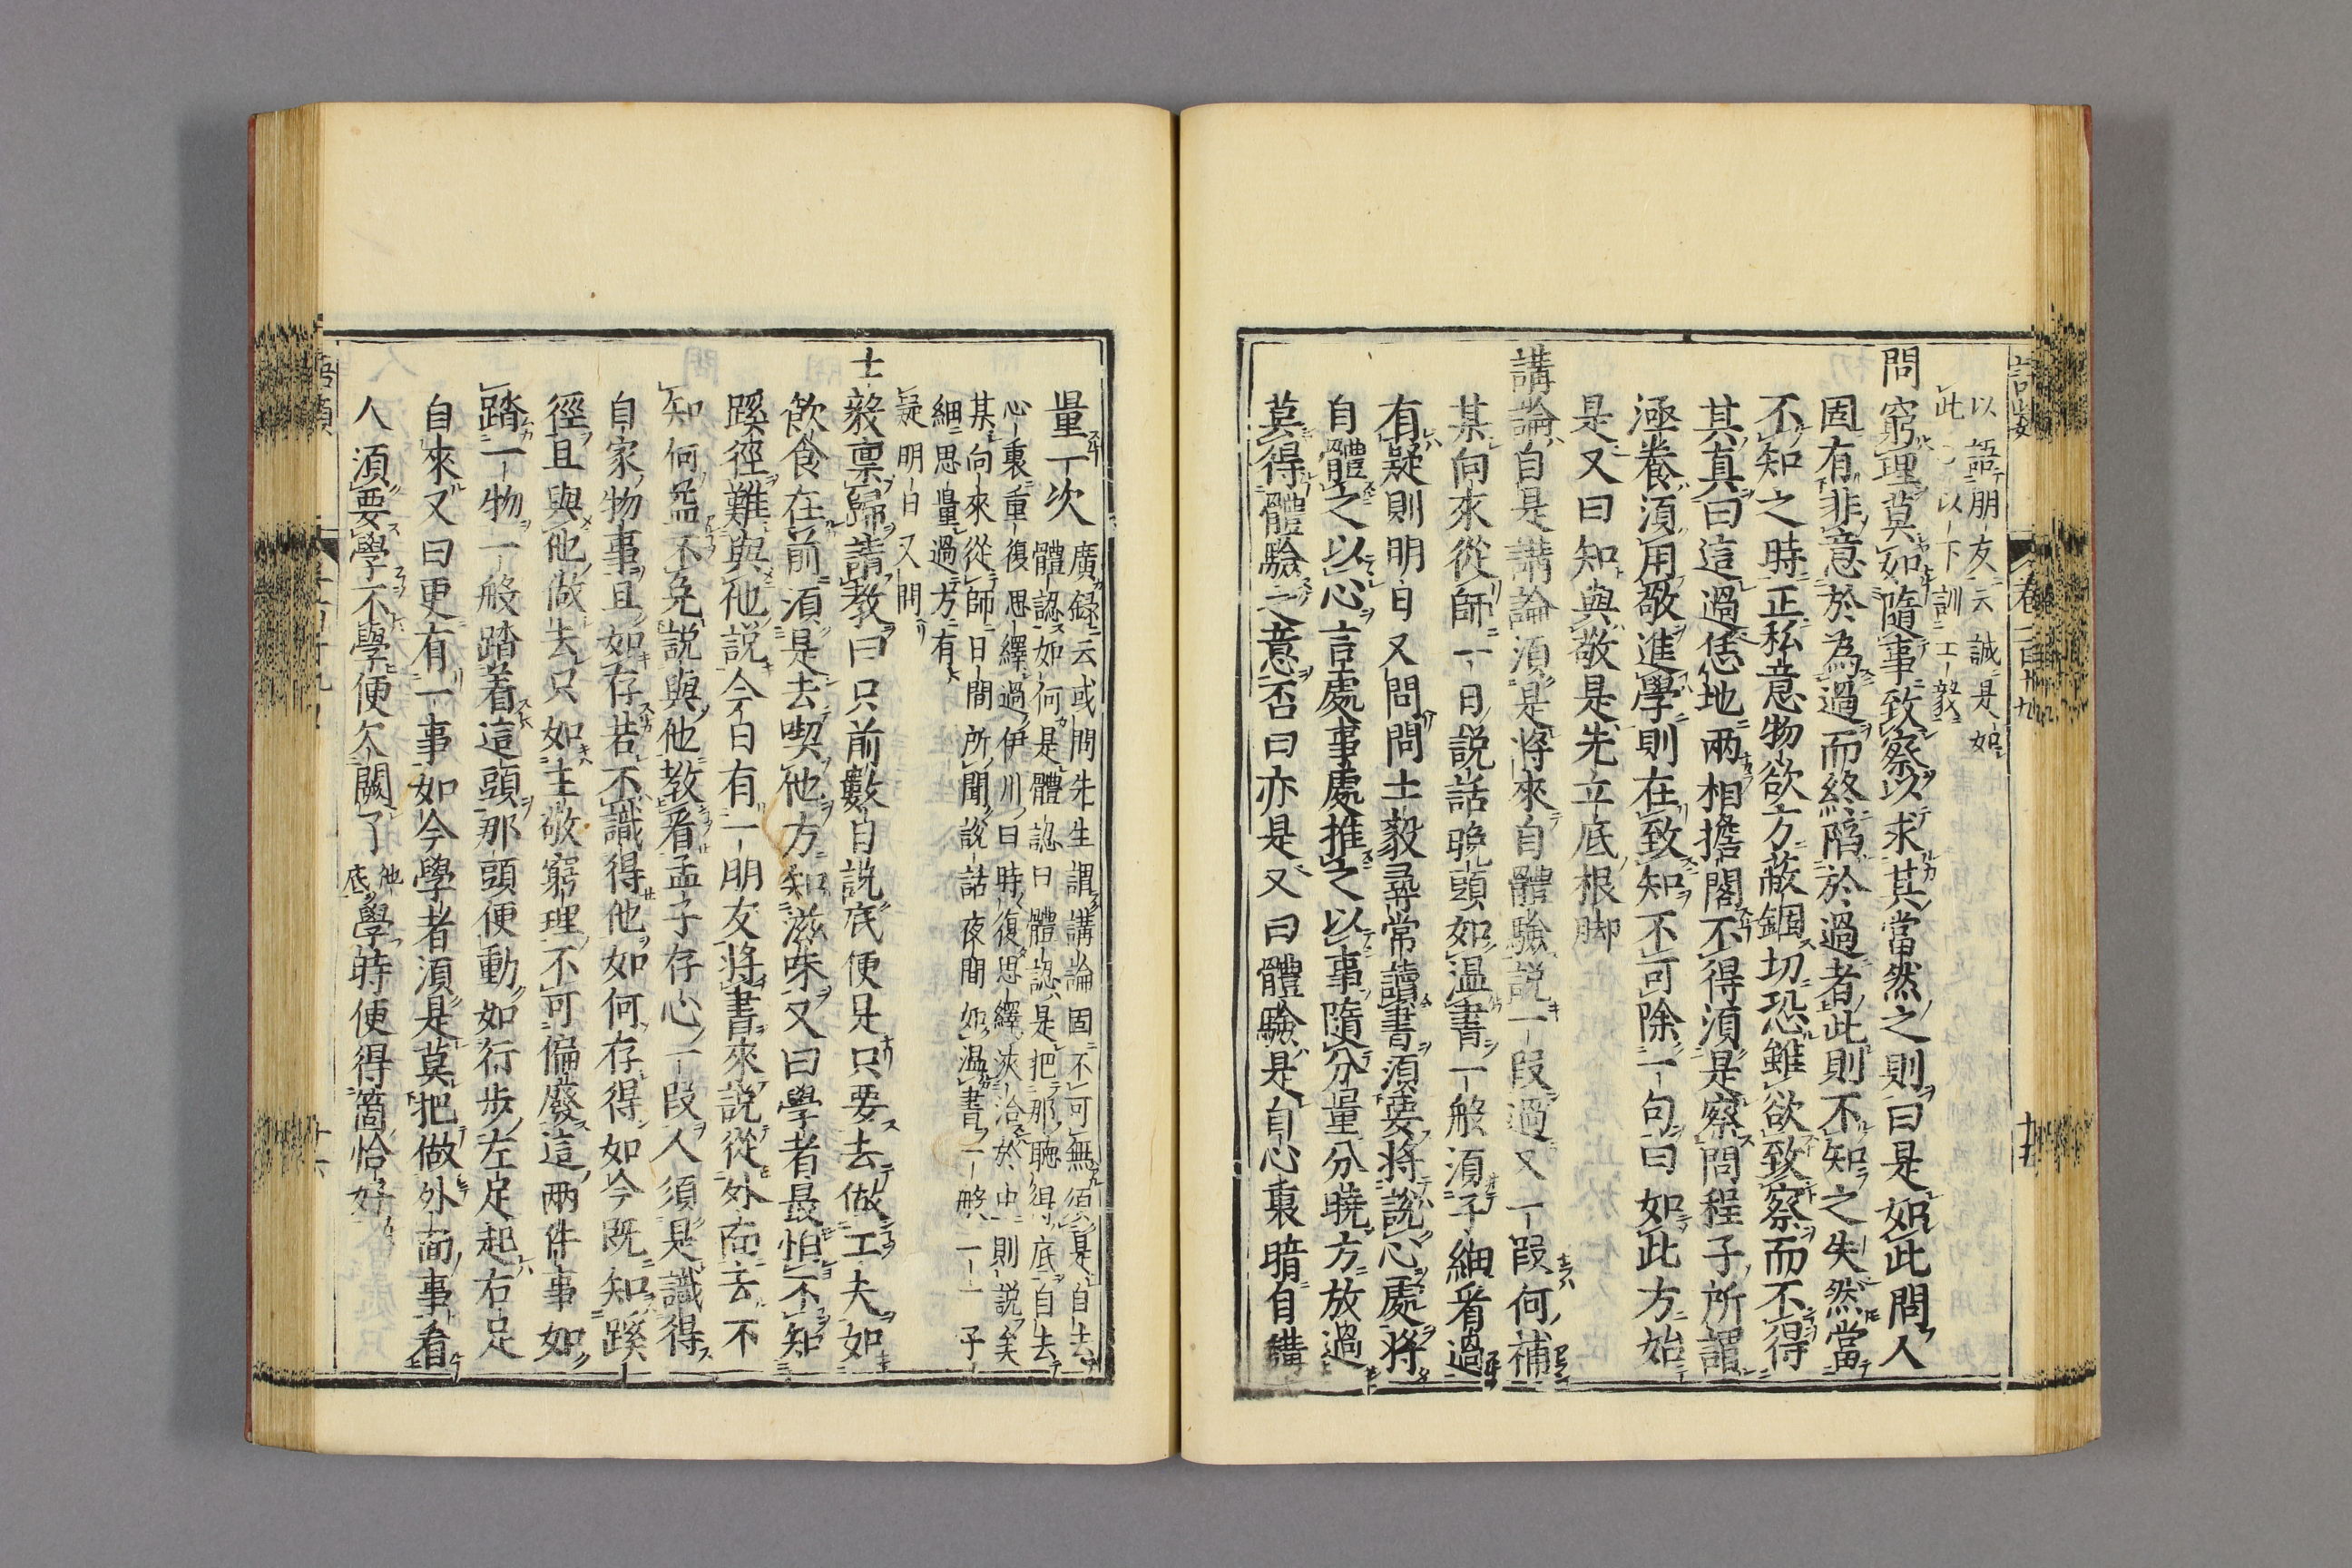 以語朋友云誠是如
此以下訓士毅
問窮理莫如隨事致察以求其當然之則曰是如此問人
固有非意於為過而終陷於過者此則不知之失然當
不知之時正私意物欲方蔽錮切恐雖欲致察而不得
其真曰這過恁地兩相擔閣不得須是察問程子所謂
涵養須用敬進學則在致知不可除一句曰如此方始
是又曰知與敬是先立底根脚
講論自是講論須是將來自體驗説一叚過又一叚何補
某向來從師一日説話晚頭如温書一般須子細看過
有疑則明日又問問士毅尋常讀書須要將説心處將
自體之以心言處事處推之以事隨分量分曉方放過
莫得體驗之意否曰亦是又曰體驗是自心裏暗自講
卷一百十九
十五
量一次
廣録云或問先生謂講論固不可無須是自去
體認如何是體認曰體認是把那聽得底自去
心裏重復思繹過伊川曰時復思繹浹洽於中則説矣
某向來從師日間所聞説話夜間如温書一般一一子
細思量過方有
疑明日又問
士毅禀歸請教曰只前數自説底便是只要去做工夫如
飲食在前須是去喫他方知滋味又曰學者最怕不知
蹊徑難與他説今日有一朋友將書來説從外面去不
知何益不免説與他教看孟子存心一叚人須是識得
自家物事且如存若不識得他如何存得如今既知蹊
徑且與他做去只如主敬窮理不可偏廢這兩件事如
踏一物一般踏着這頭那頭便動如行步左足起右足
自來又曰更有一事如今學者須是莫把做外面事看
人須要學不學便欠闕了他底學時便得箇恰好
語類
十六